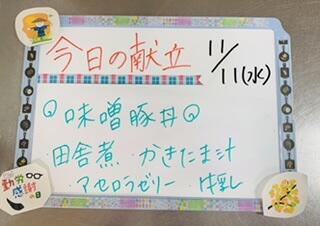 今日の献立
11/11(水)
味噌豚丼
田舎煮 かきたま汁
アセロラゼリー 牛乳
勤労
感謝
の日